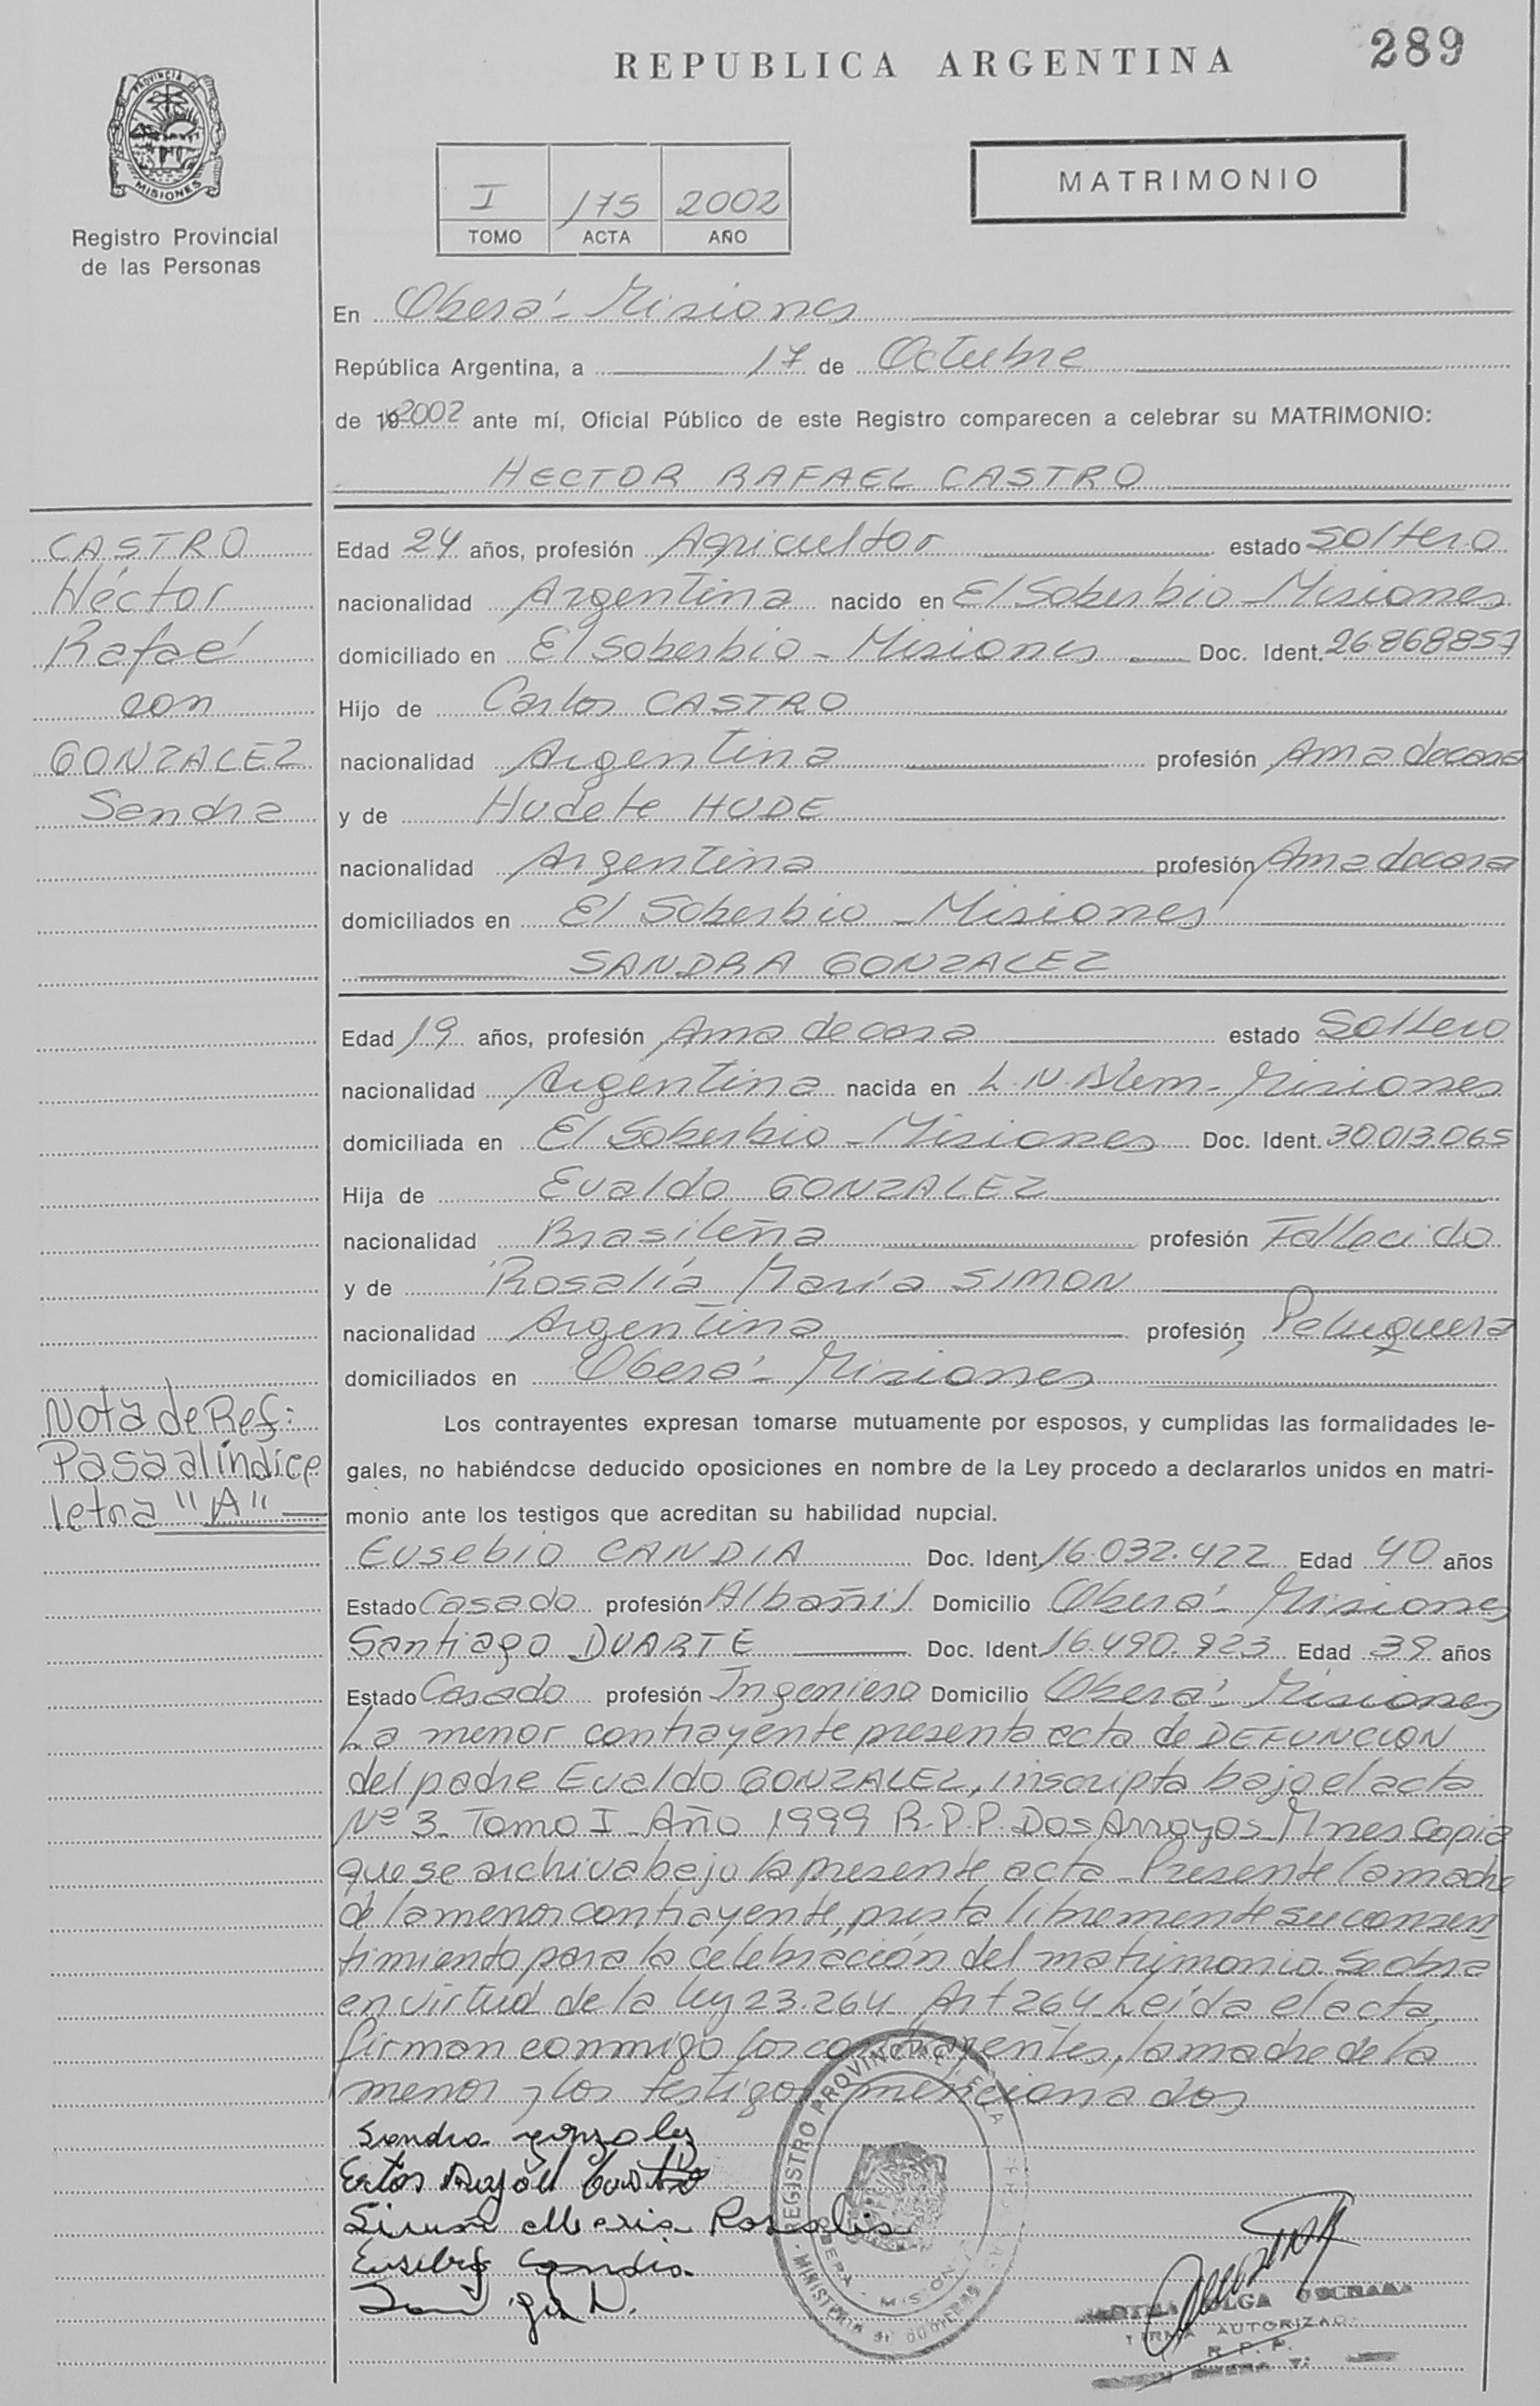 REPUBLICA ARGENTINA
289
PROVINCIA DE MISIONES
Registro Provincial
de las Personas
I 175 2002
TOMO ACTA AÑO
MATRIMONIO
En Oberá - Misiones
República Argentina, a 17 de Octubre
de 19 2002 ante mí, Oficial Público de este Registro comparecen a celebrar su MATRIMONIO:
HECTOR RAFAEL CASTRO
CASTRO
Héctor
Rafael
con
GONZALEZ
Sandra
Edad 24 años, profesión Agricultor estado Soltero
nacionalidad Argentina nacido en El Soberbio - Misiones
domiciliado en El Soberbio - Misiones Doc. Ident. 26.868.857
Hijo de Carlos CASTRO
nacionalidad Argentina profesión Ama de casa
y de Hudete HUDE
nacionalidad Argentina profesión Ama de casa
domiciliados en El Soberbio - Misiones
SANDRA GONZALEZ
Edad 19 años, profesión Ama de casa estado Soltero
nacionalidad Argentina nacida en L.N. Alem - Misiones
domiciliada en El Soberbio - Misiones Doc. Ident. 30.013.065
Hija de Evaldo GONZALEZ
nacionalidad Brasileña profesión Fallecido
y de Rosalía María SIMON
nacionalidad Argentina profesión Peluquera
domiciliados en Oberá - Misiones
Nota de Ref:
Pasa al índice
letra "A"
Los contrayentes expresan tomarse mutuamente por esposos, y cumplidas las formalidades le-
gales, no habiéndose deducido oposiciones en nombre de la Ley procedo a declararlos unidos en matri-
monio ante los testigos que acreditan su habilidad nupcial.
Eusebio CANDIA Doc. Ident. 16.032.422 Edad 40 años
Estado Casado profesión Albañil Domicilio Oberá - Misiones
Santiago DUARTE Doc. Ident. 16.490.923 Edad 39 años
Estado Casado profesión Ingeniero Domicilio Oberá - Misiones
La menor contrayente presenta acta de DEFUNCION
del padre Evaldo GONZALEZ, inscripta bajo el acta
Nº 3 - Tomo I - Año 1999 R.P.P. Dos Arroyos - Mnes Copia
que se archiva bajo la presente acta - Presente la madre
de la menor contrayente, presta libremente su consen
timiento para la celebración del matrimonio. Se obra
en virtud de la ley 23.264 Art 264 Leída el acta,
firman conmigo los contrayentes, la madre de la
menor y los testigos mencionados
Sandra Gonzalez
Simon Maria Rosalia
Eusebio Candia
REGISTRO PROVINCIAL DE LA
OBERA - MISIONES
MINISTERIO DE GOBIERNO
OLGA
FIRMA AUTORIZADA
R. P. P.